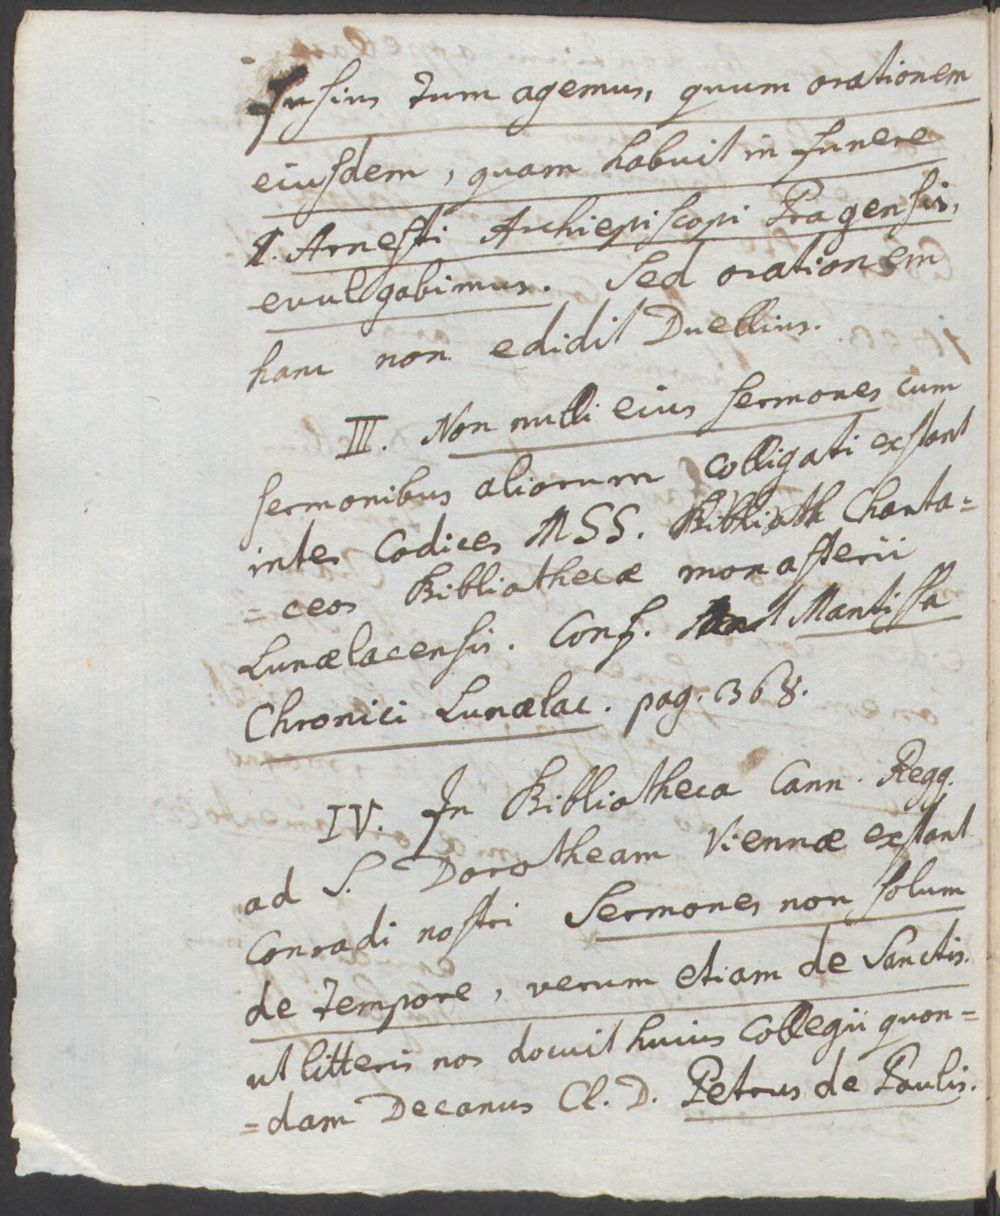 fusius tum agemus, quum orationem
eiusdem, quam habuit in funere
Arnesti Archiepiscopi Pragensis,
evulgabimus. Sed orationem
hanc non edidit Duellius.
III. Nonnulli eius sermones cum
sermonibus aliorum colligati exstant
inter Codices MSS. Charta=
=ceos Bibliothecæ monasterii
Lunælacensis. Conf. Mantissa
Chronici Lunælac. pag. 368.
IV. In Bibliotheca Cann. Regg.
ad S. Dorotheam Viennæ exstant
Conradi nostri Sermones non solum
de Tempore, verum etiam de Sanctis.
ut litteris nos docuit huius Collegii quon=
=dam Decanus Cl. D. Petrus de Paulis.